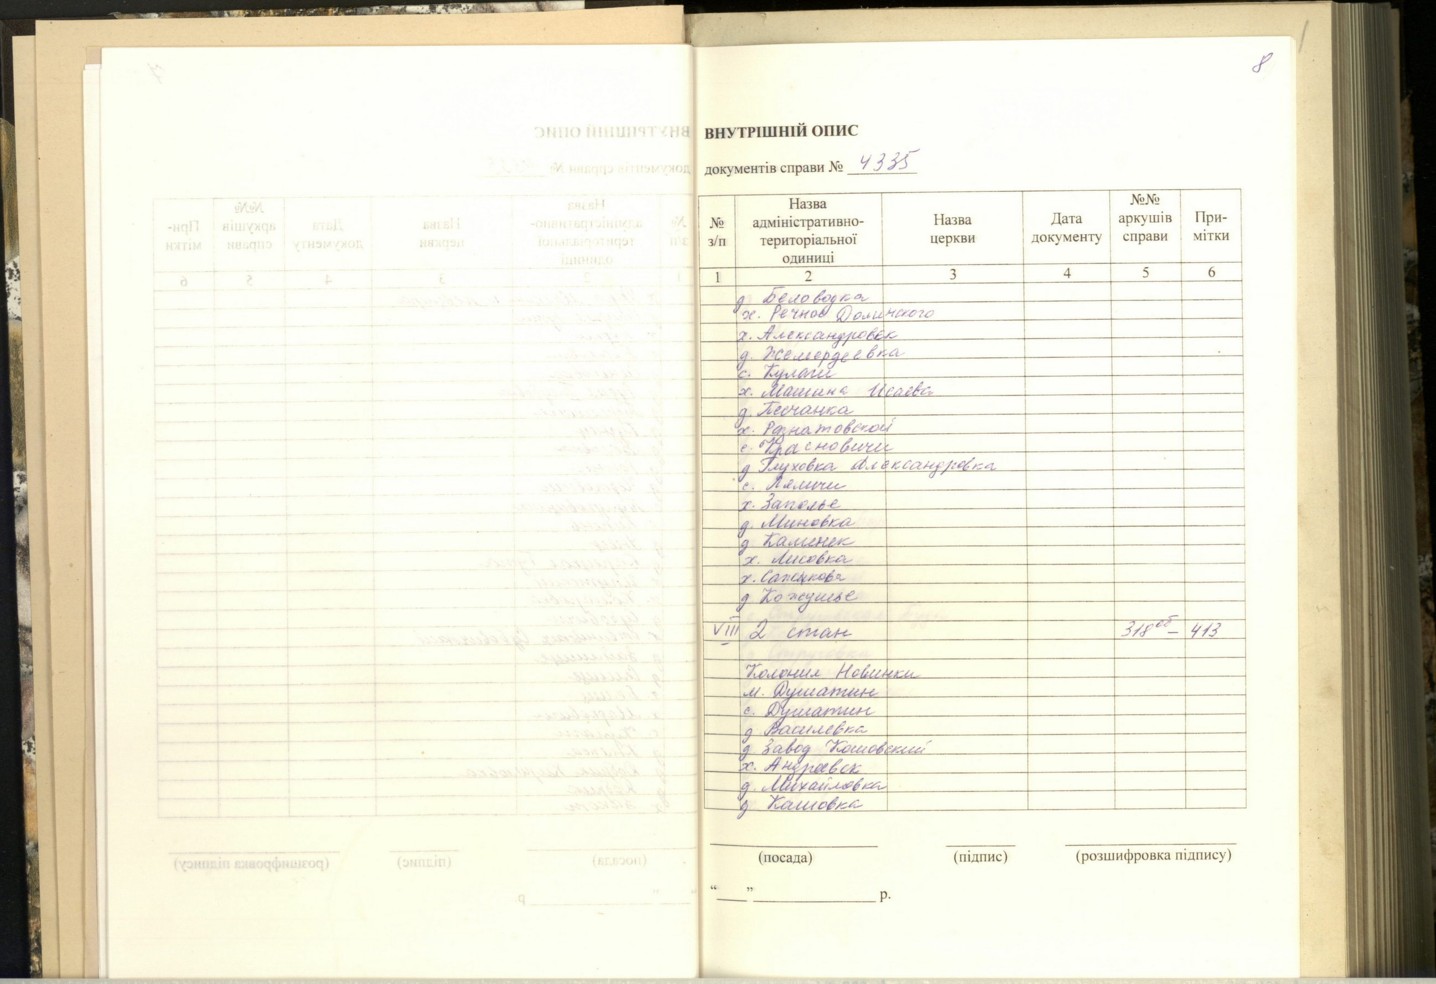 8
ВНУТРІШНІЙ ОПИС
документів справи № 4335
№ з/п
Назва адміністративно-територіальної одиниці
Назва церкви
Дата документу
№№ аркушів справи
Примітки
1 2 3 4 5 6
д. Беловодка
х. Речнов Долинского
х. Александровск
д. Жемердеевка
с. Кулаги
х. Машина Исаева
д. Песчанка
х. Рознатовской
с. Красновичи
д. Глуховка Александровка
с. Ляличи
х. Заполье
д. Миновка
д. Каменск
х. Лисовка
х. Сапецкова
д. Кожушье
VIII 2 стан 318об – 413
Колония Новинки
м. Душатин
с. Душатин
д. Василевка
д. Завод Кошовский
х. Андреевск
д. Михайловка
д. Кашовка
(посада) (підпис) (розшифровка підпису)
“____” ________________ р.